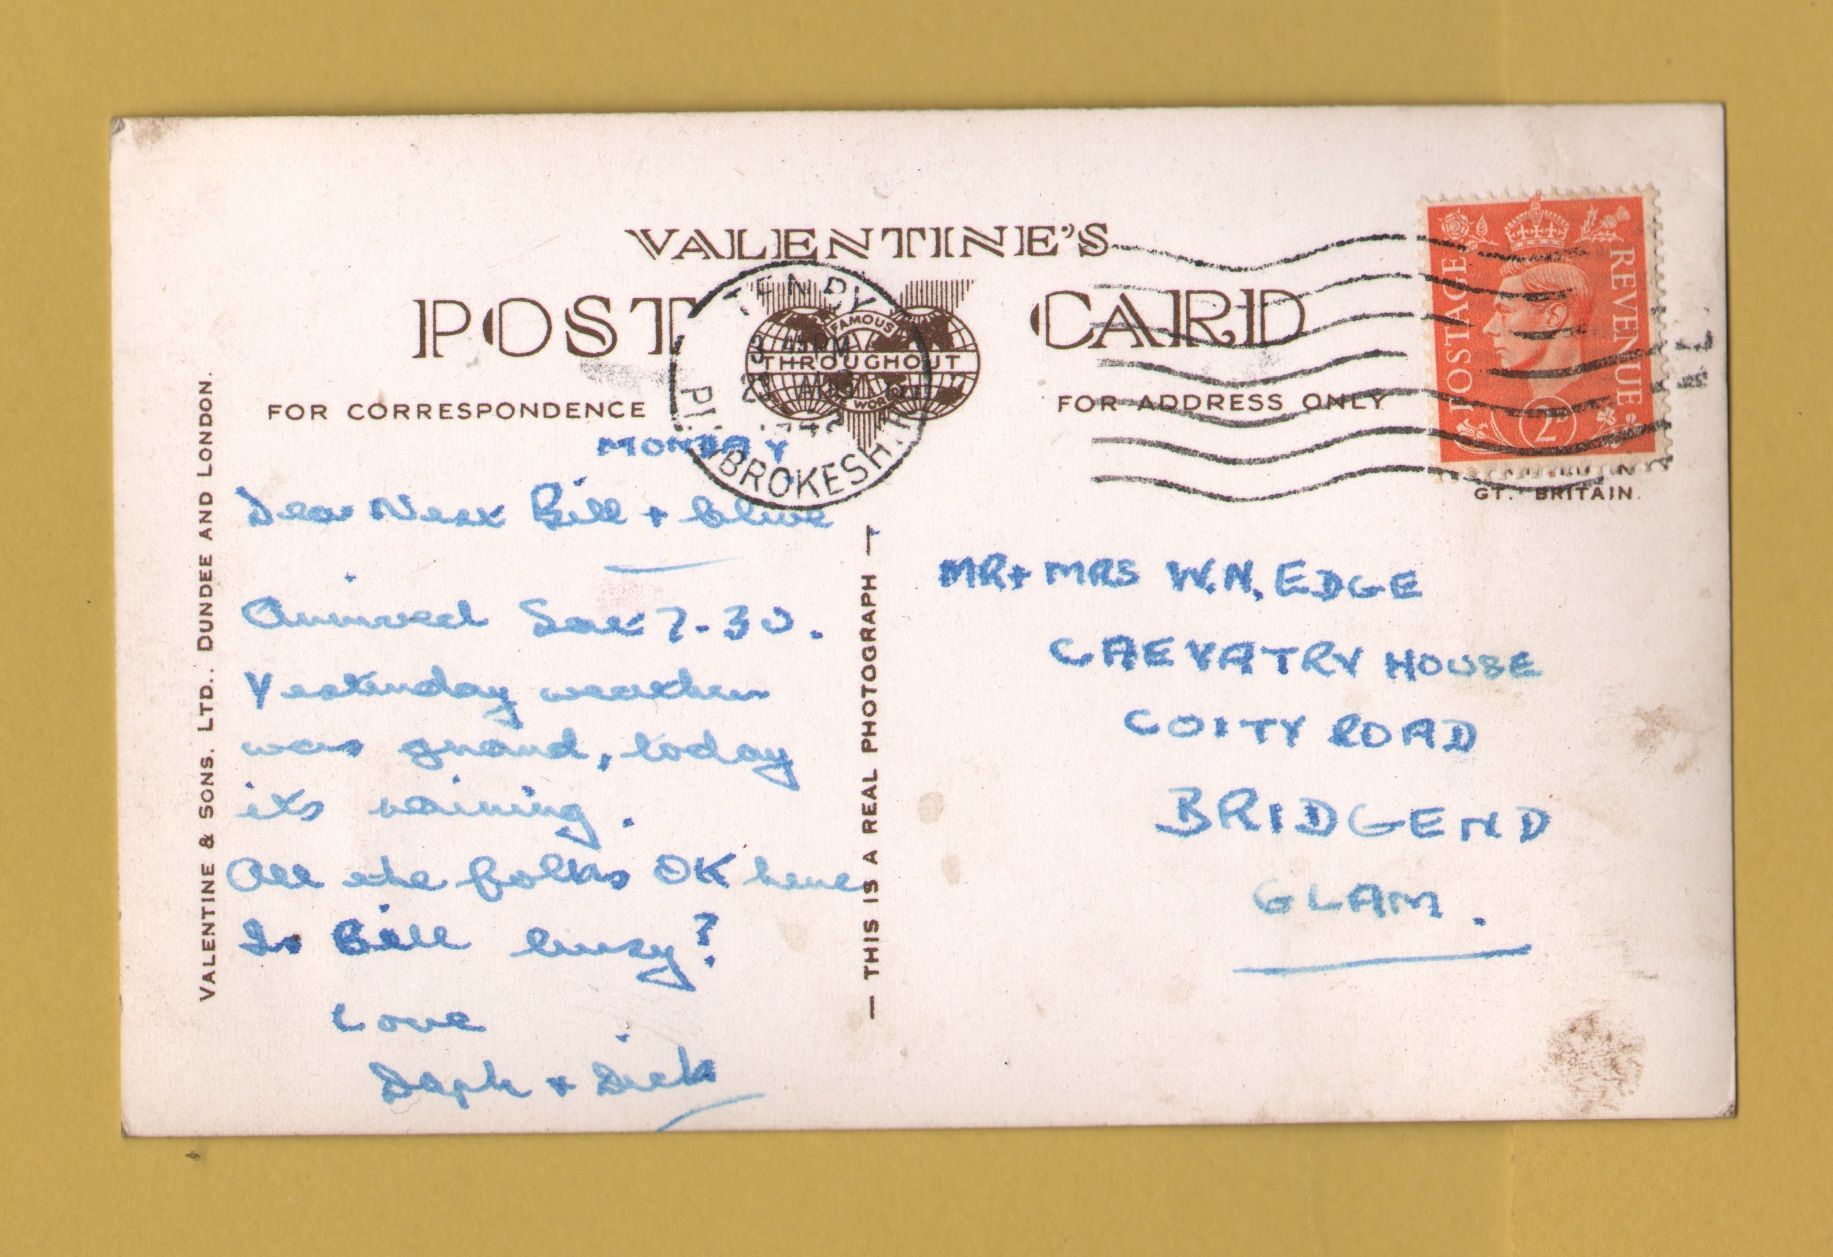 VALENTINE'S
POST CARD
FAMOUS
THROUGHOUT
WORLD
FOR CORRESPONDENCE
FOR ADDRESS ONLY
TENBY
AUG
PEMBROKESHIRE
POSTAGE
REVENUE
2D
GT. BRITAIN.
VALENTINE & SONS. LTD., DUNDEE AND LONDON.
— THIS IS A REAL PHOTOGRAPH —
MONDAY
Dear Bill +
Arrived Sat 7-30.
Yesterday weather
was grand, today
its raining.
All the folks OK here
Is Bill busy?
Love
Daph + Dick
MR + MRS W.N. EDGE
CAEVATRY HOUSE
COITY ROAD
BRIDGEND
GLAM.